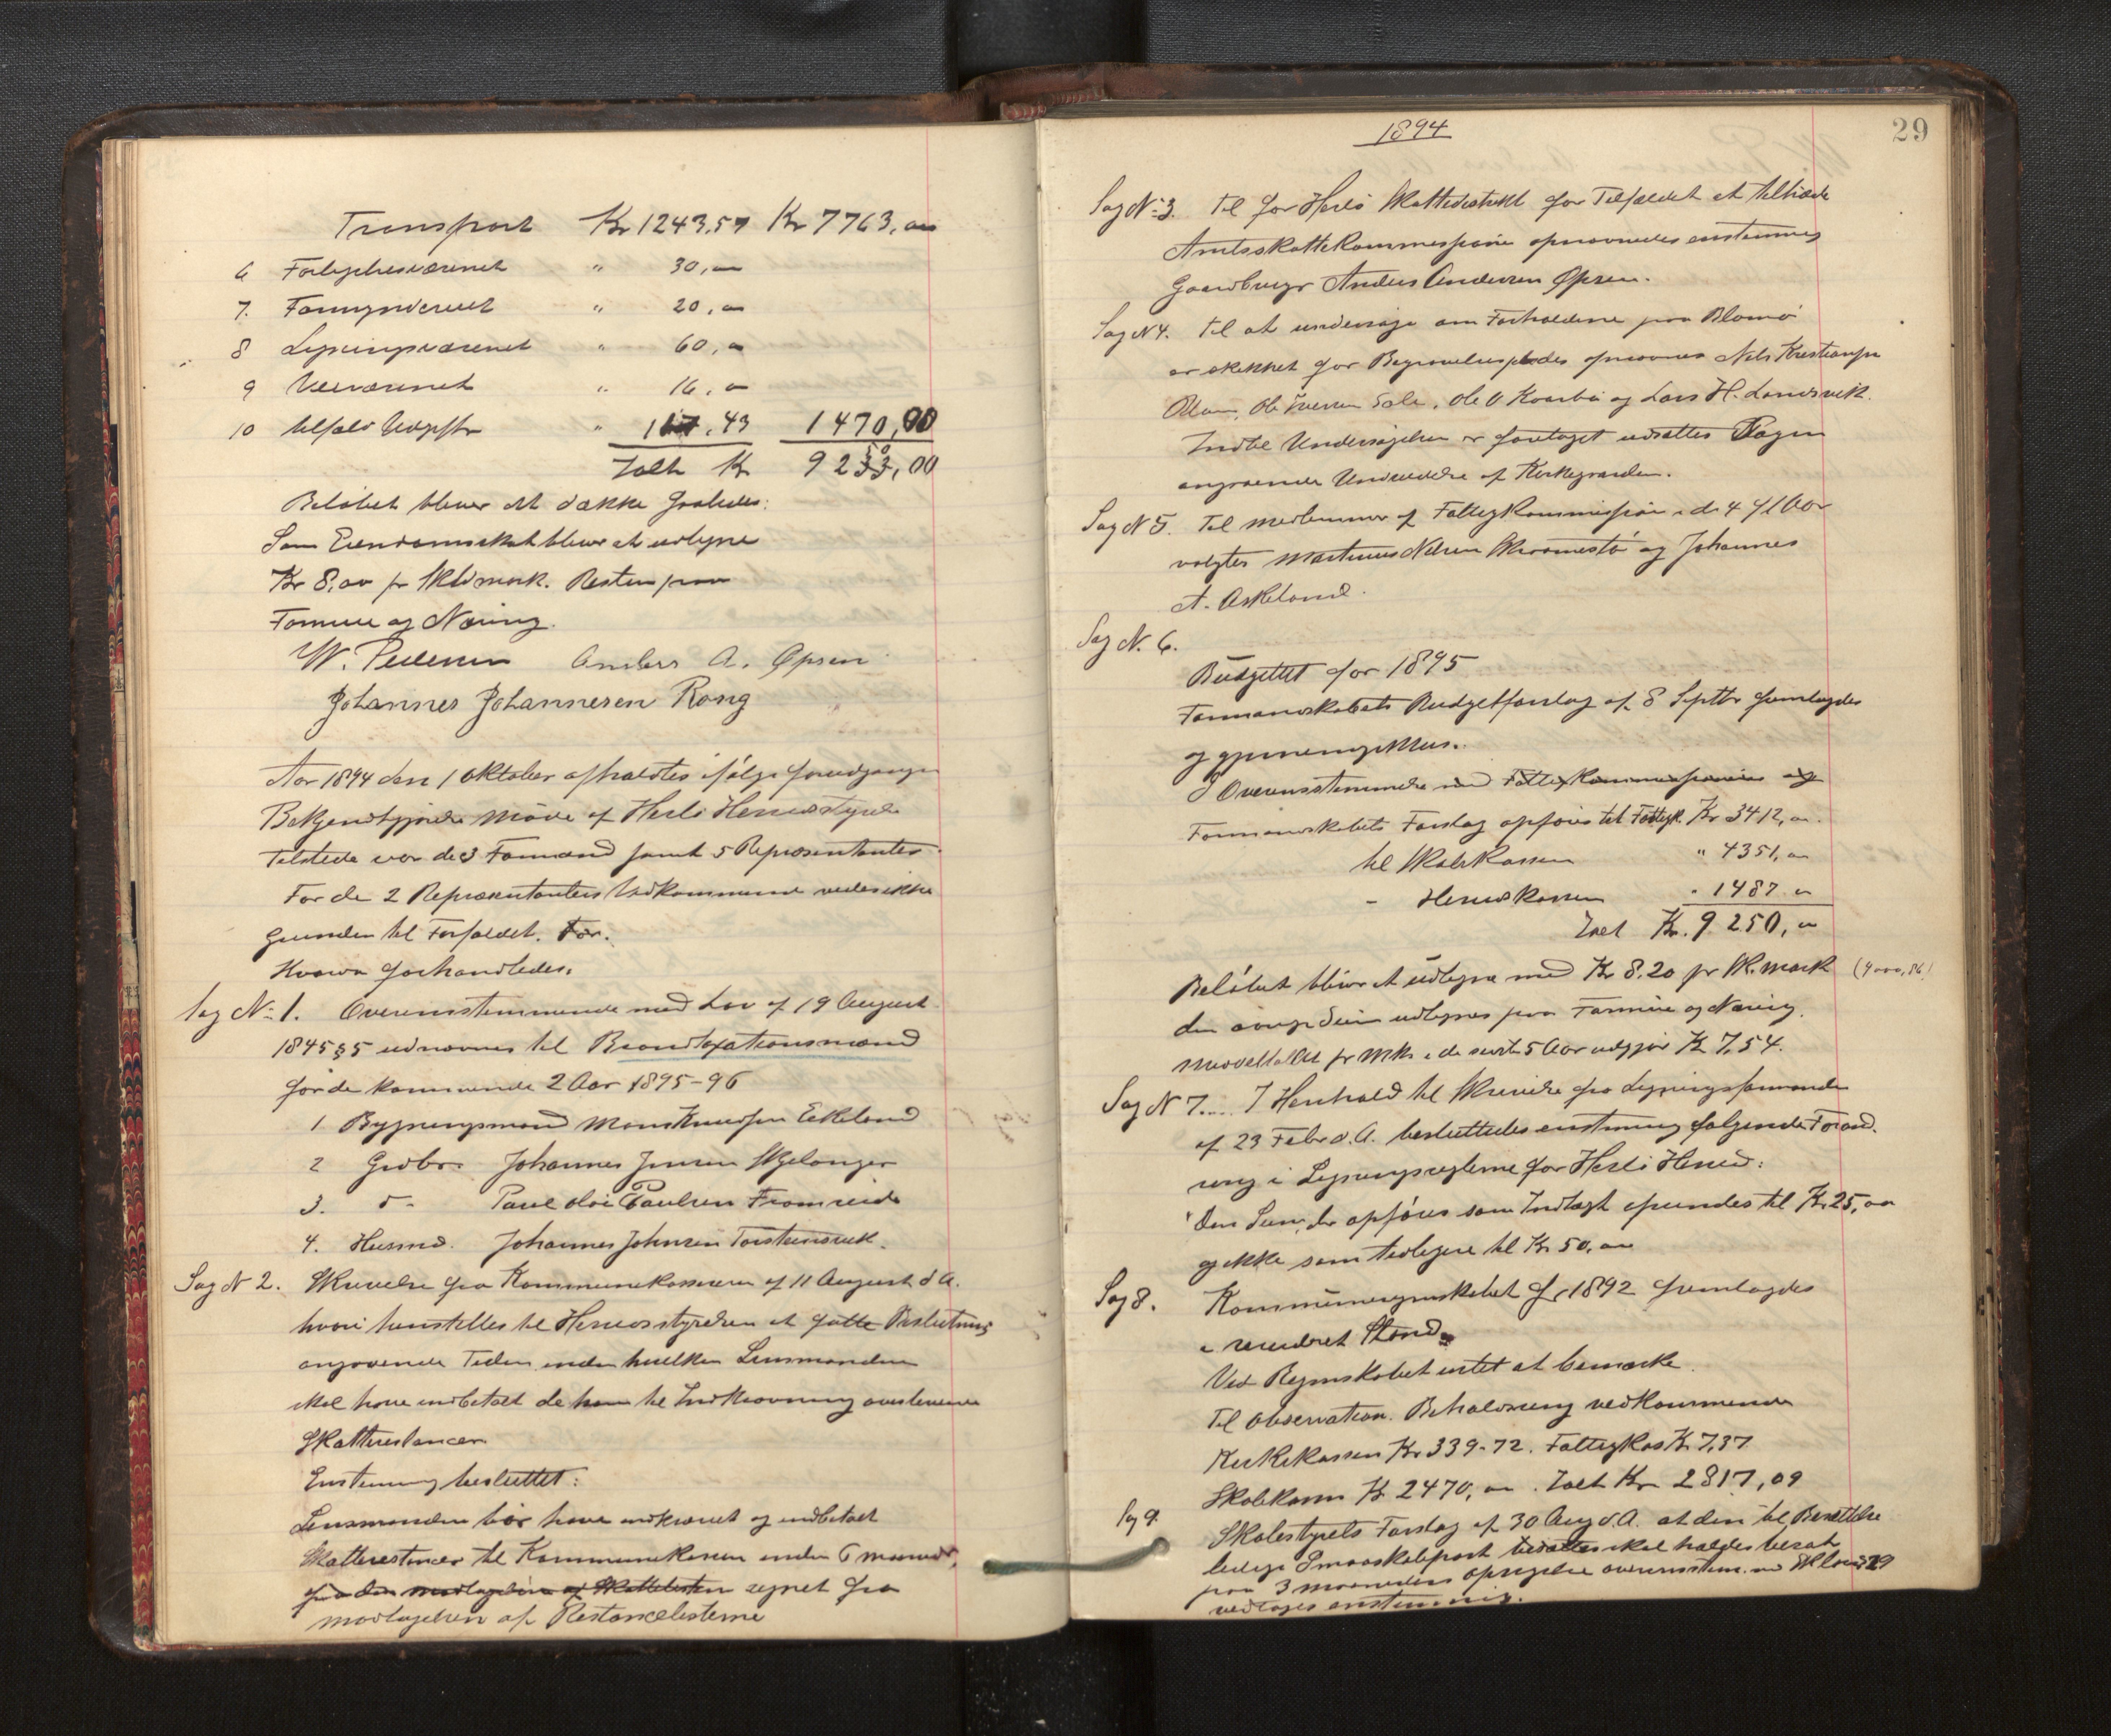 Transport Kr 1243.57 Kr 7763, oo
6 Forligelsesvæsenet " 30, oo
7. Formynderiet " 20, oo
8 Lygningsvæsenet " 60, oo
9 Veivæsenet " 16, oo
10 tilfæld Udgifter " .43 1470,00
Ialt Kr 9233,00
Beløbet bliver at dække saaledes:
Som Eiendomsskat bliver at udligne
Kr 8,oo pr Skldmark. Resten paa
Formue og Næring.
W. Pedersen Anders A. Øpsen
Johannes Johannesen Rong
Aar 1894 den 1 Oktober afholdtes ifølge foregaaende
Bekjendtgjørelse Møde af Herlø Herredsstyre
Tilstede var de 3 Formænd samt 5 Repræsentanter
For de 2 Repræsentanters Vedkommende vides ikke
Grunden til Forfaldet. For.
Hvorva forhandledes.
Sag No 1. Overensstemmende med Lov af 19 August
1845 § 5 udnævnes til Brandtaxationsmænd
for de kommende 2 Aar 1895-96
1 Bygningsmand Mons Knudsen Eikeland
2 Grdbr. Johannes Jensen Skjelanger
3. d- Paul Paulsen Fromreide
4. Husmd. Johannes Johnsen Torsteinsvik.
Sag N 2. Skrivelse fra Kommunekassereren af 11 August d A.
hvori henstilles til Herredsstyrelsen at fatte Beslutning
angaaende Tiden inden hvilken Lensmanden
skal have indbetalt de ham til Indkrævning overleverede
Skatterestancer
Enstemmig besluttet:
Lensmanden bør have indkrævet og indbetalt
Skatterestancer til Kommunekassen inden 6 maaneder,
fra den modtagelsen af Skattelisten regnet fra
modtagelsen af Restancelisterne
1894
29
Sag No 3. Til for Herlø Skattedistrikt for Tilfældet at tiltræde
Amtsskattekommissionen opnævnedes enstemmig
Gaardbruger Anders Andersen Øpsen.
Sag N 4. Til at undersøge om Forholdene paa Blomø
er skikket for Begravelsesplads opnævnes Nils Kristiansen
Ole Iversen Sole, Ole O Kvarbø og Lars H. Landsvik.
Indtil Undersøgelsen er foretaget udsættes Sagen
angaaende Udvidelse af Kirkegaarden.
Sag N 5. Til medlemmer af Fattigkommissionen i de 4 f Aar
valgtes Martinus Nilsen Skraamestø og Johannes
A. Askeland.
Sag N. 6.
Budgettet for 1895
Formandskabets Budgetforslag af 8 Septbr fremlagdes
og gjennemgikkes.
I Overensstemmelse med Fattigkommissionens og
Formandskabets Forslag opføres til Fattigk. Kr 3412, oo
til Skolekassen " 4351, oo
- Herredskassen " 1487 oo
Ialt Kr. 9250, oo
Beløbet bliver at udligne med Kr 8.20 pr Sk. mark (4000,86)
den øvrige Deel udlignes paa Formue og Næring.
Middeltallet pr Mk i de sidste 5 Aar udgjør Kr 7,54.
Sag N 7. I Henhold til Skrivelse fra Ligningsformanden
af 23 Febr d. A. besluttedes enstemmig følgende Forand-
ring i Ligningsreglerne for Herlø Herred:
Den Sum, der opføres som Indtægt afrundes til Kr 25, oo
og ikke som tidligere til Kr 50, oo
Sag 8. Kommuneregnskabet for 1892 fremlagdes
i revideret Stand.
Ved Regnskabet intet at bemærke.
Til Observation. Beholdning vedkommende
Kirkekassen Kr 339-72. Fattigkas Kr 7,37
Skolekassen Kr 2470, oo. Ialt Kr 2817,09
Sag 9. Skolestyrets Forslag af 30 Aug d. A. at den til Besættelse
ledige Smaaskolepost besættes skal holdes besat
paa 3 maaneders opsigelse overensstem. med Skl.lov § 29
vedtages enstemmig.